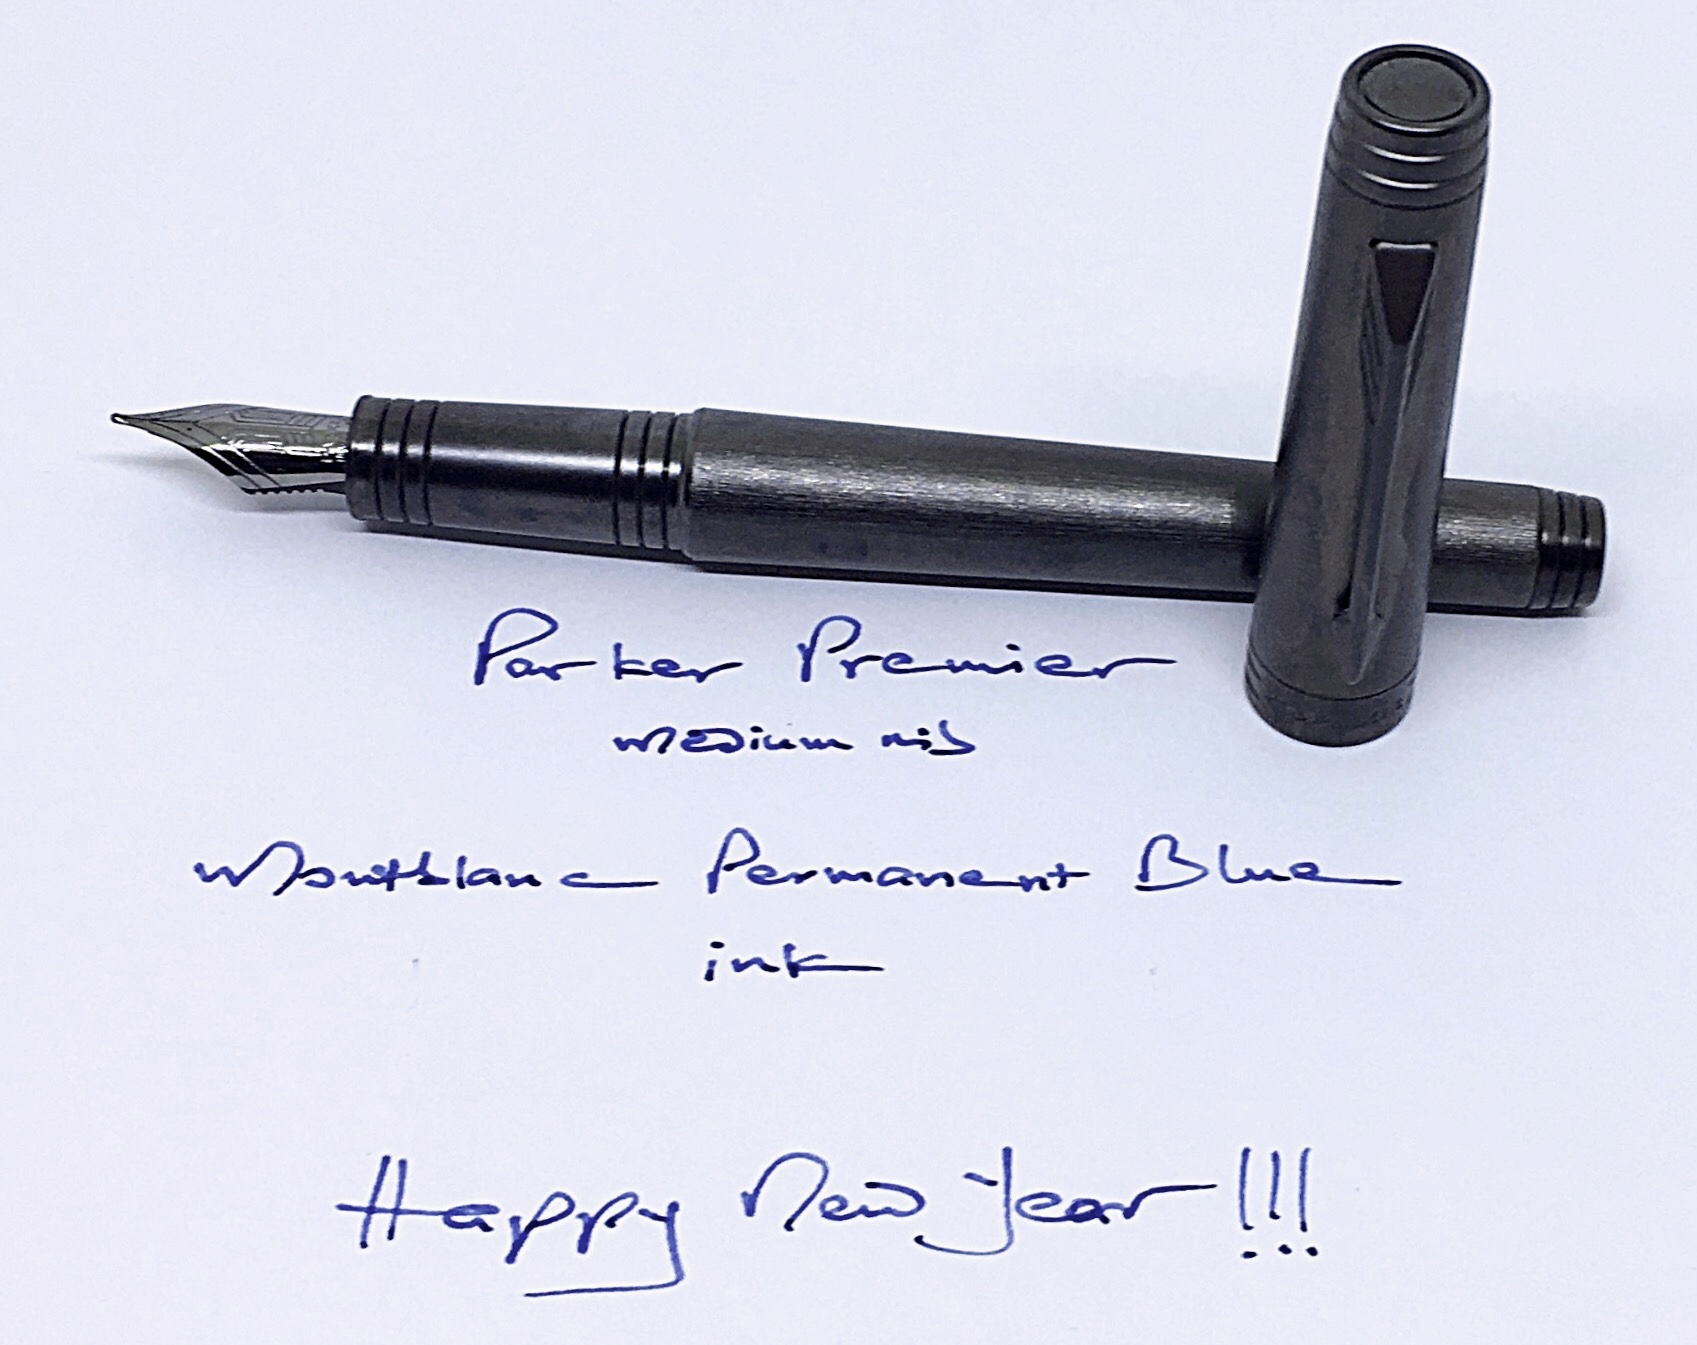 Parker Premier
medium nib
Montblanc Permanent Blue
ink
Happy New Year !!!